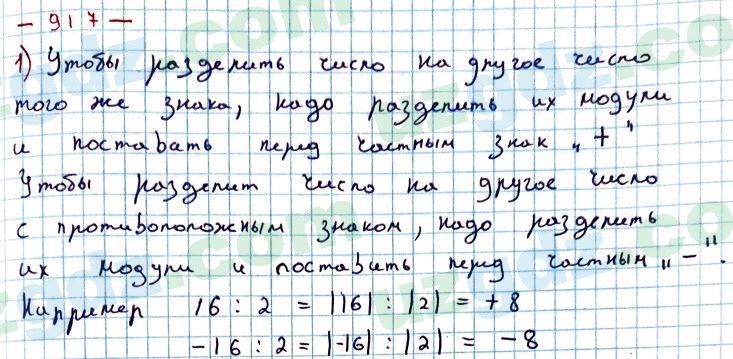 - 917 -
1) Чтобы разделить число на другое число
того же знака, надо разделить их модули
и поставать перед частным знак „+"
Чтобы разделит число на другое число
с противоположным знаком, надо разделить
их модули и поставить перед частным „-".
Например 16 : 2 = |16| : |2| = +8
-16 : 2 = |-16| : |2| = -8